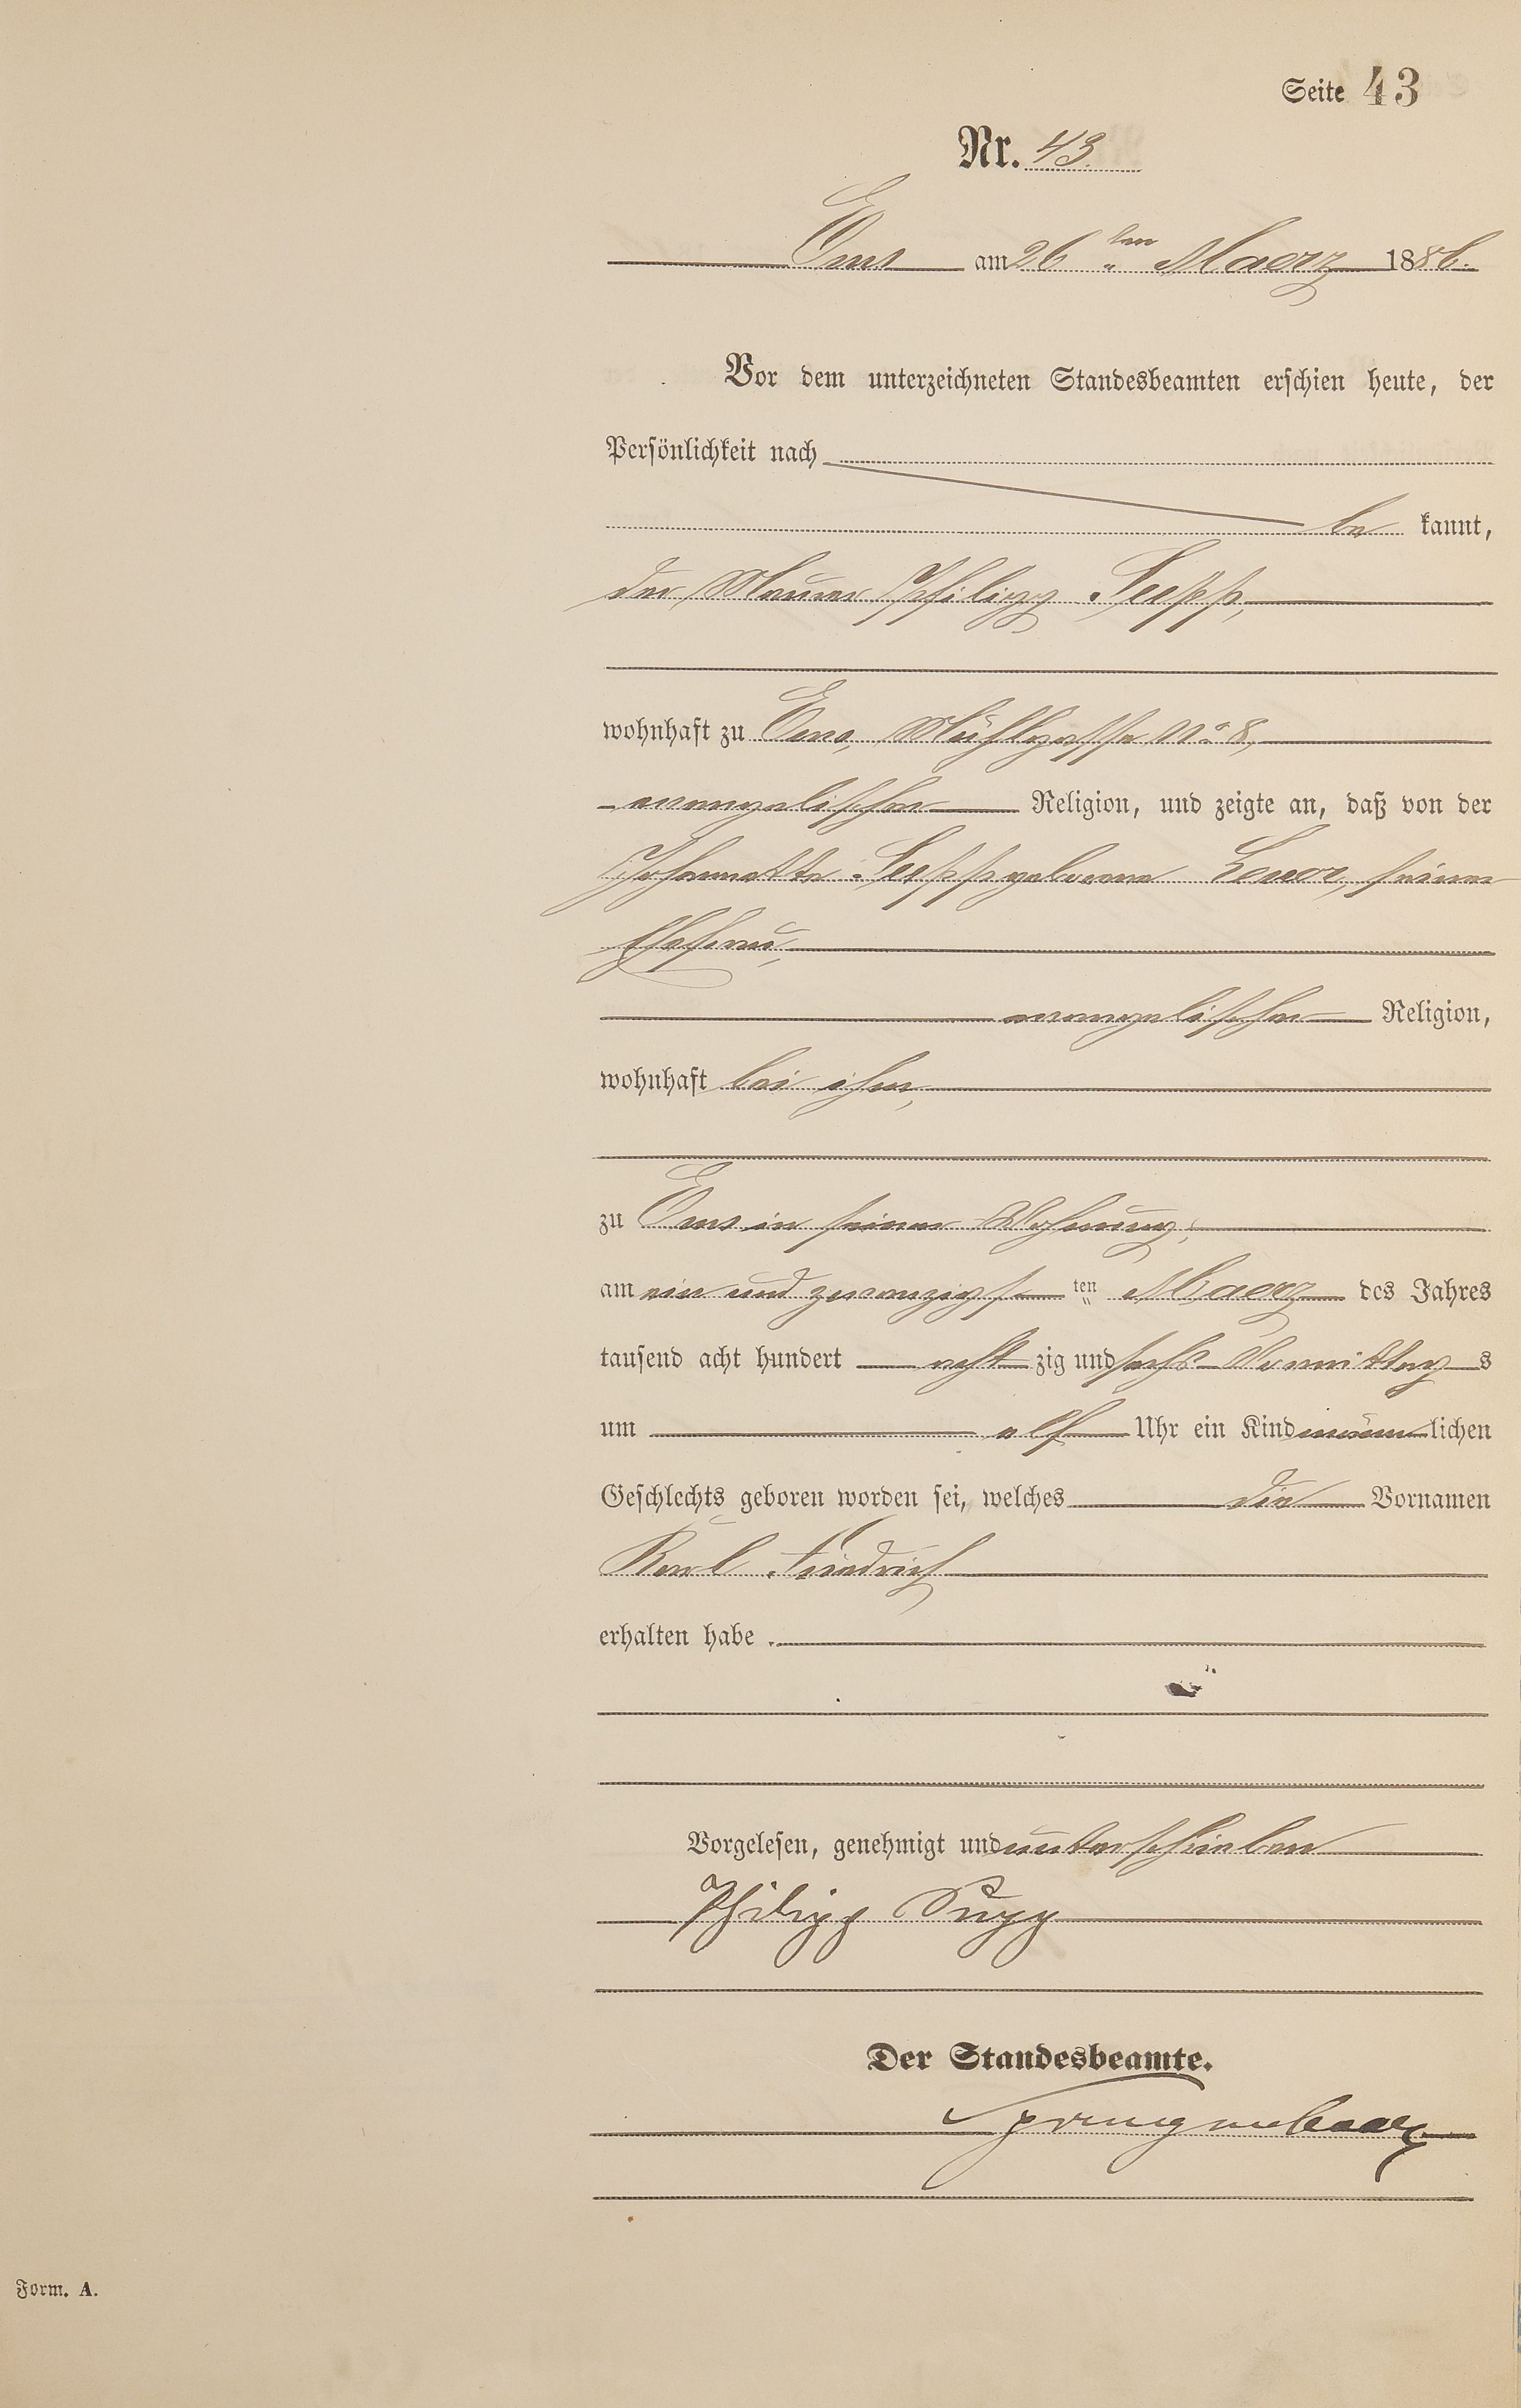 Seite 43
Nr. 43.
Ems am 26 ten Maerz 1886.
Vor dem unterzeichneten Standesbeamten erschien heute, der
Persönlichkeit nach
be kannt,
der Maurer Philipp Supp,
wohnhaft zu Ems, Mühlgasse No 8,
evangelischer Religion, und zeigte an, daß von der
Johannette Supp geborene seiner
Ehefrau,
evangelischer Religion,
wohnhaft bei ihm,
zu Ems in seiner Wohnung,
am ein und zwanzigs ten Maerz des Jahres
tausend acht hundert acht zig und sechs Vormittag s
um elf Uhr ein Kind männ lichen
Geschlechts geboren worden sei, welches die Vornamen
Karl Friedrich
erhalten habe.
Vorgelesen, genehmigt und unterschrieben
Philipp Supp
Der Standesbeamte.
Form. A.